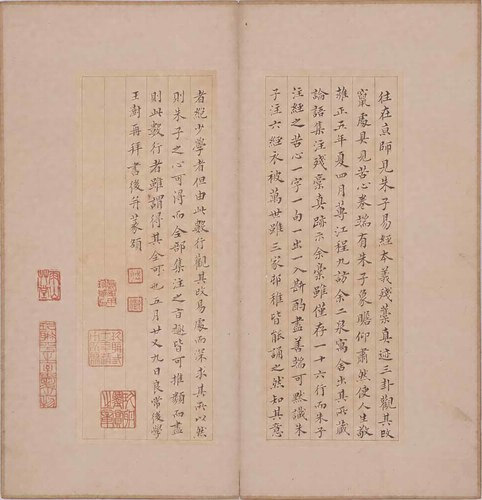 往在京師見朱子易經本義殘藁真迹三卦觀其改
竄處具見苦心卷端有朱子象瞻仰肅然使人生敬
雍正五年夏四月蓴江程九訪余二泉寓舍出其所藏
論語集注殘藁真跡示余藁雖僅存一十六行而朱子
注經之苦心一字一句一出一入斟酌盡善端可默識朱
子注六經衣被萬世雖三家邨稚皆能誦之然知其意
者絕少學者但由此數行觀其改易處而深求其所以然
則朱子之心可得而全部集注之旨趣皆可推類而盡
則此數行者雖謂得其全可也五月廿又九日良常後學
王澍再拜書後并篆額